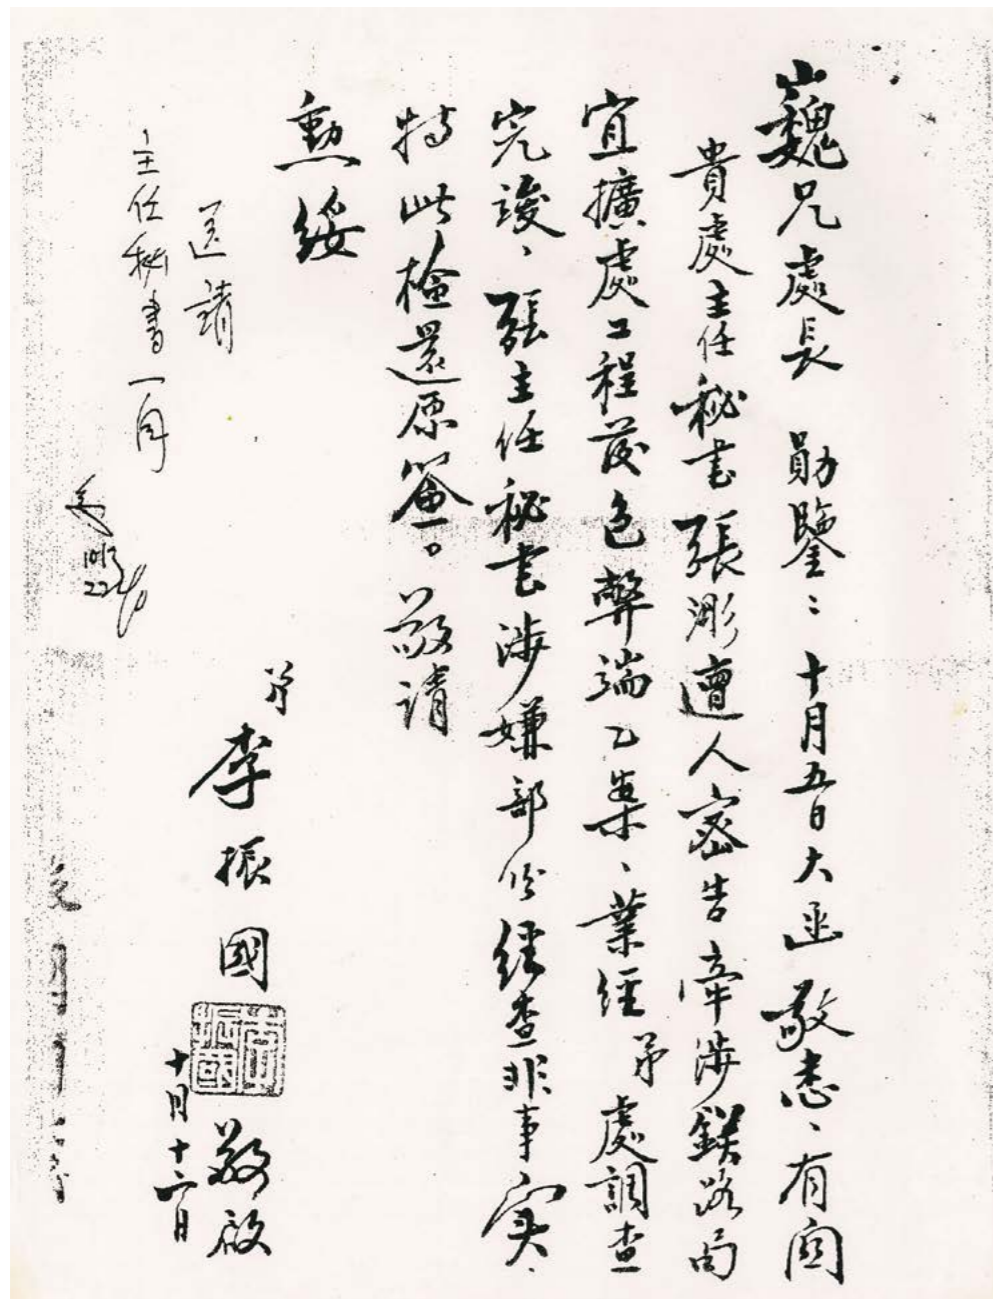 巍兄處長 勛鑒：十月五日大函敬悉、有関
貴處主任秘書張渺遭人密告牽涉鉄路局
宜擴處工程茂色弊端乙案、業經弟處調查
完竣、張主任秘書涉嫌部份經查非事实、
特此檢還原簽。敬請
勳綏
弟李振國敬啟
李振國
十月十六日
送請
主任秘書一閱